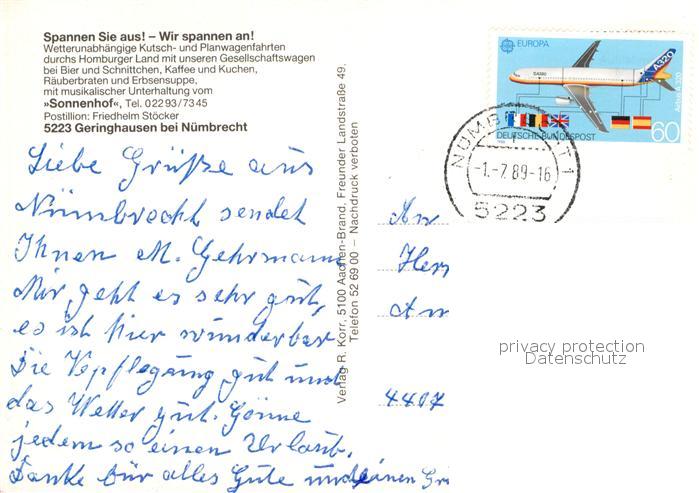 Spannen Sie aus! – Wir spannen an!
Wetterunabhängige Kutsch- und Planwagenfahrten
durchs Homburger Land mit unseren Gesellschaftswagen
bei Bier und Schnittchen, Kaffee und Kuchen,
Räuberbraten und Erbsensuppe,
mit musikalischer Unterhaltung vom
»Sonnenhof«, Tel. 02293/7345
Postillion: Friedhelm Stöcker
5223 Geringhausen bei Nümbrecht
Liebe Grüße aus
Nümbrecht sendet
Ihnen M. Gehrmann
Mir geht es sehr gut,
es ist hier wunderbar
Die Verpflegung gut und
das Wetter gut. Gönne
jedem so einen Urlaub.
Danke für alles Gute und
Verlag R. Korr, 5100 Aachen-Brand, Freunder Landstraße 49,
Telefon 52 69 00 – Nachdruck verboten
EUROPA
A320
Airbus A 320
DEUTSCHE BUNDESPOST
60
1
-1.-7.89-16
5223
An
Her
An
privacy protection
Datenschutz